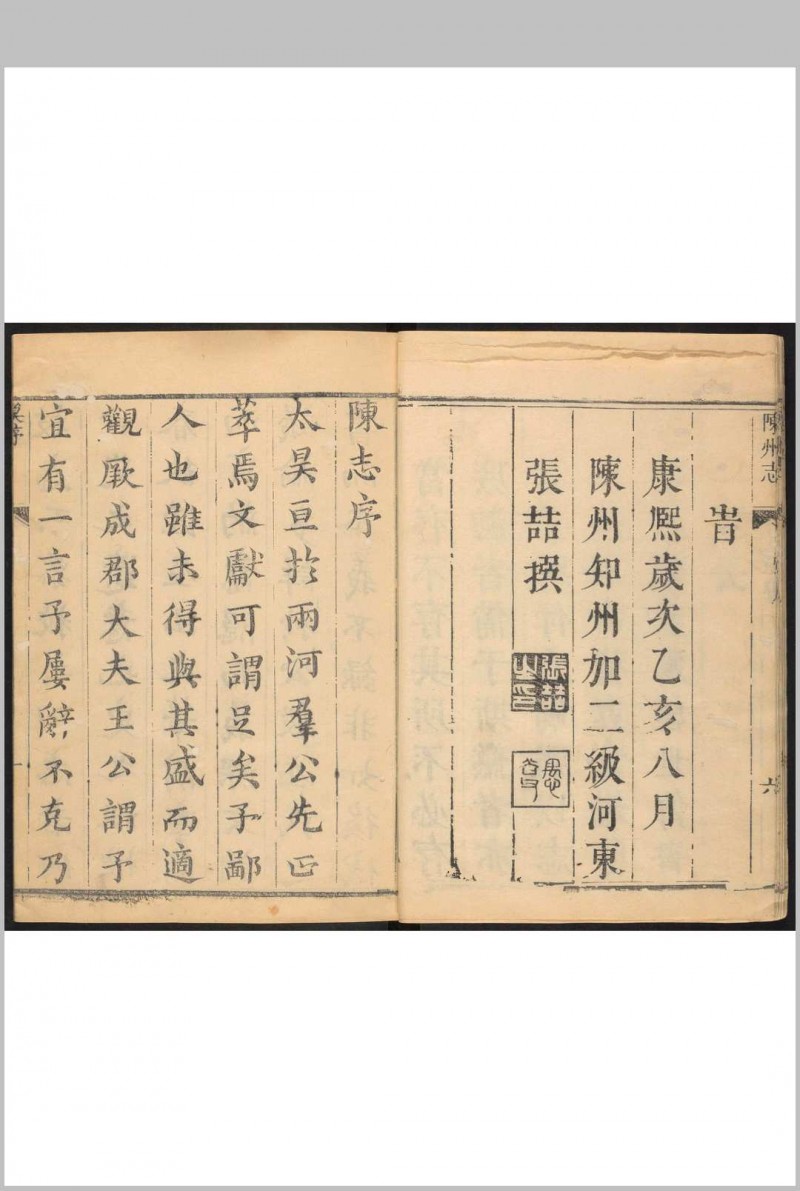 陳州志
六
旹
康熙歲次乙亥八月
陳州知州加二級河東
張喆撰
張喆之印
陳志序
太昊亘扵兩河羣公先正
萃焉文獻可謂足矣予鄙
人也雖未得與其盛而適
觀厥成郡大夫王公謂予
宜有一言予屢辭不克乃
序
一